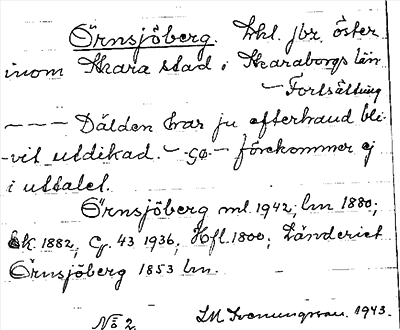 Örnsjöberg. Lhl. jbr. öster
inom Skara stad i Skaraborgs län
— Fortsättning
— — — Dälden har ju efterhand bli-
vit utdikad. — -sjö- — förekommer ej
i uttalet.
Örnsjöberg ml. 1942, lm 1880;
Ek. 1882, G. 43 1936, Hfl. 1800; Länderiet
Örnsjöberg 1853 lm.
No 2 LM Svenungsson. 1943.